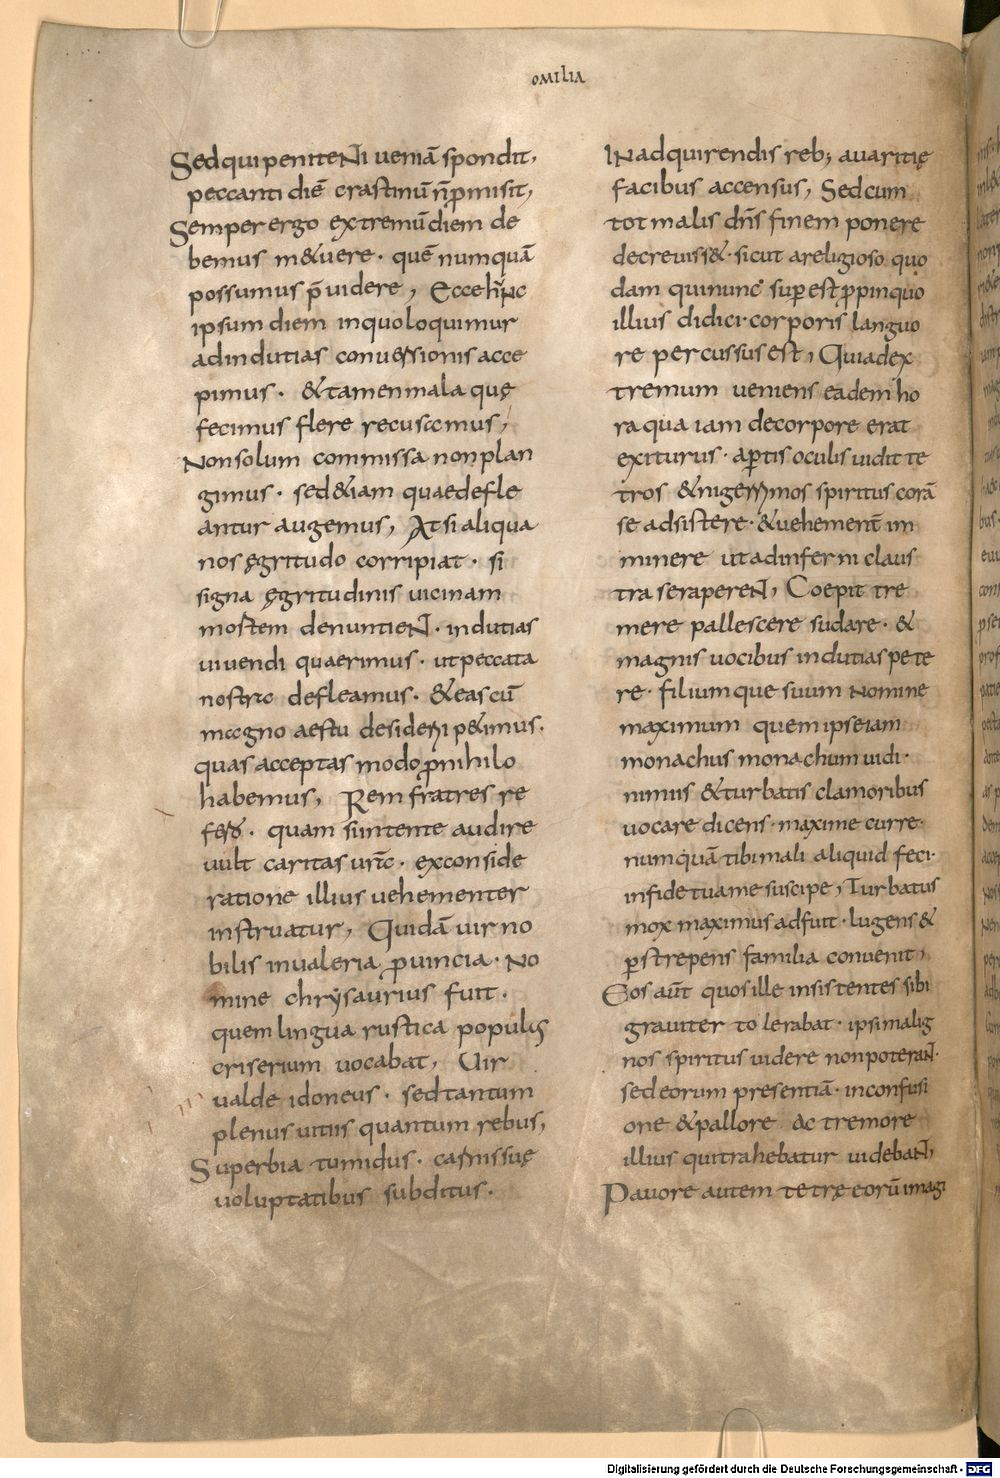 omilia
Sed qui penitenti ueniā spondit,
peccanti diē crastinū n̄ p̄misit,
Semper ergo extremū diem de
bemus m&uere · quē numquā
possumus p̄uidere, Ecce hunc
ipsum diem in quo loquimur
ad indutias conuersionis acce
pimus · &tamen mala quę
fecimus flere recusamus,
Non solum commissa non plan
gimus · sed &iam quae defle
antur augemus, At si aliqua
nos ęgritudo corripiat · si
signa ęgritudinis uicinam
mortem denuntient · indutias
uiuendi quaerimus · ut peccata
nostra defleamus · & eas cū
magno aestu desiderii p&imus ·
quas acceptas modo p̄ nihilo
habemus, Rem fratres re
fero · quam si intente audire
uult caritas ur̄a · ex conside
ratione illius uehementer
instruatur, Quidā uir no
bilis in ualeria prouincia · no
mine chrysaurius fuit ·
quem lingua rustica populus
criserium uocabat, Uir
ualde idoneus · sed tantum
plenus uitiis quantum rebus,
Superbia tumidus · carnis suę
uoluptatibus subditus ·
In adquirendis reb; auaritię
facibus accensus, Sed cum
tot malis dn̄s finem ponere
decreuiss& · sicut a religioso quo
dam qui nunc superest ppinquo
illius didici · corporis languo
re percussus est, Qui ad ex
tremum ueniens eadem ho
ra qua iam de corpore erat
exiturus · aptis oculis uidit te
tros & nigerrimos spiritus corā
se adsistere · & uehement̄ im
minere ut ad inferni claus
tra se raperent, Coepit tre
mere pallescere sudare · &
magnis uocibus indutias pete
re · filiumque suum nomine
maximum quem ipse iam
monachus monachum uidi ·
nimiis & turbatis clamoribus
uocare dicens · maxime curre ·
numquā tibi mali aliquid feci ·
in fide tua me suscipe, Turbatus
mox maximus adfuit · lugens &
pstrepens familia conuenit,
Eos aūt quos ille insistentes sibi
grauiter tolerabat · ipsi malig
nos spiritus uidere non poterant ·
sed eorum presentiā · in confusi
one & pallore ac tremore
illius qui trahebatur uidebant,
Pauore autem tetrę eorū imagi
Digitalisierung gefördert durch die Deutsche Forschungsgemeinschaft - DFG